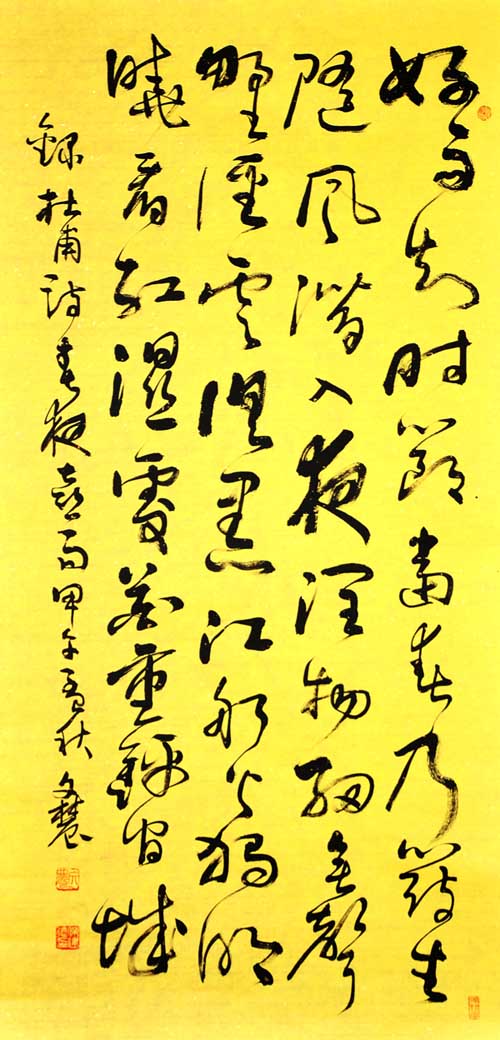 好雨知时節當春乃發生
隨風潛入夜潤物細無聲
野徑雲俱黑江船火獨明
曉看紅濕處花重錦官城
錄杜甫詩春夜喜雨甲午高秋文